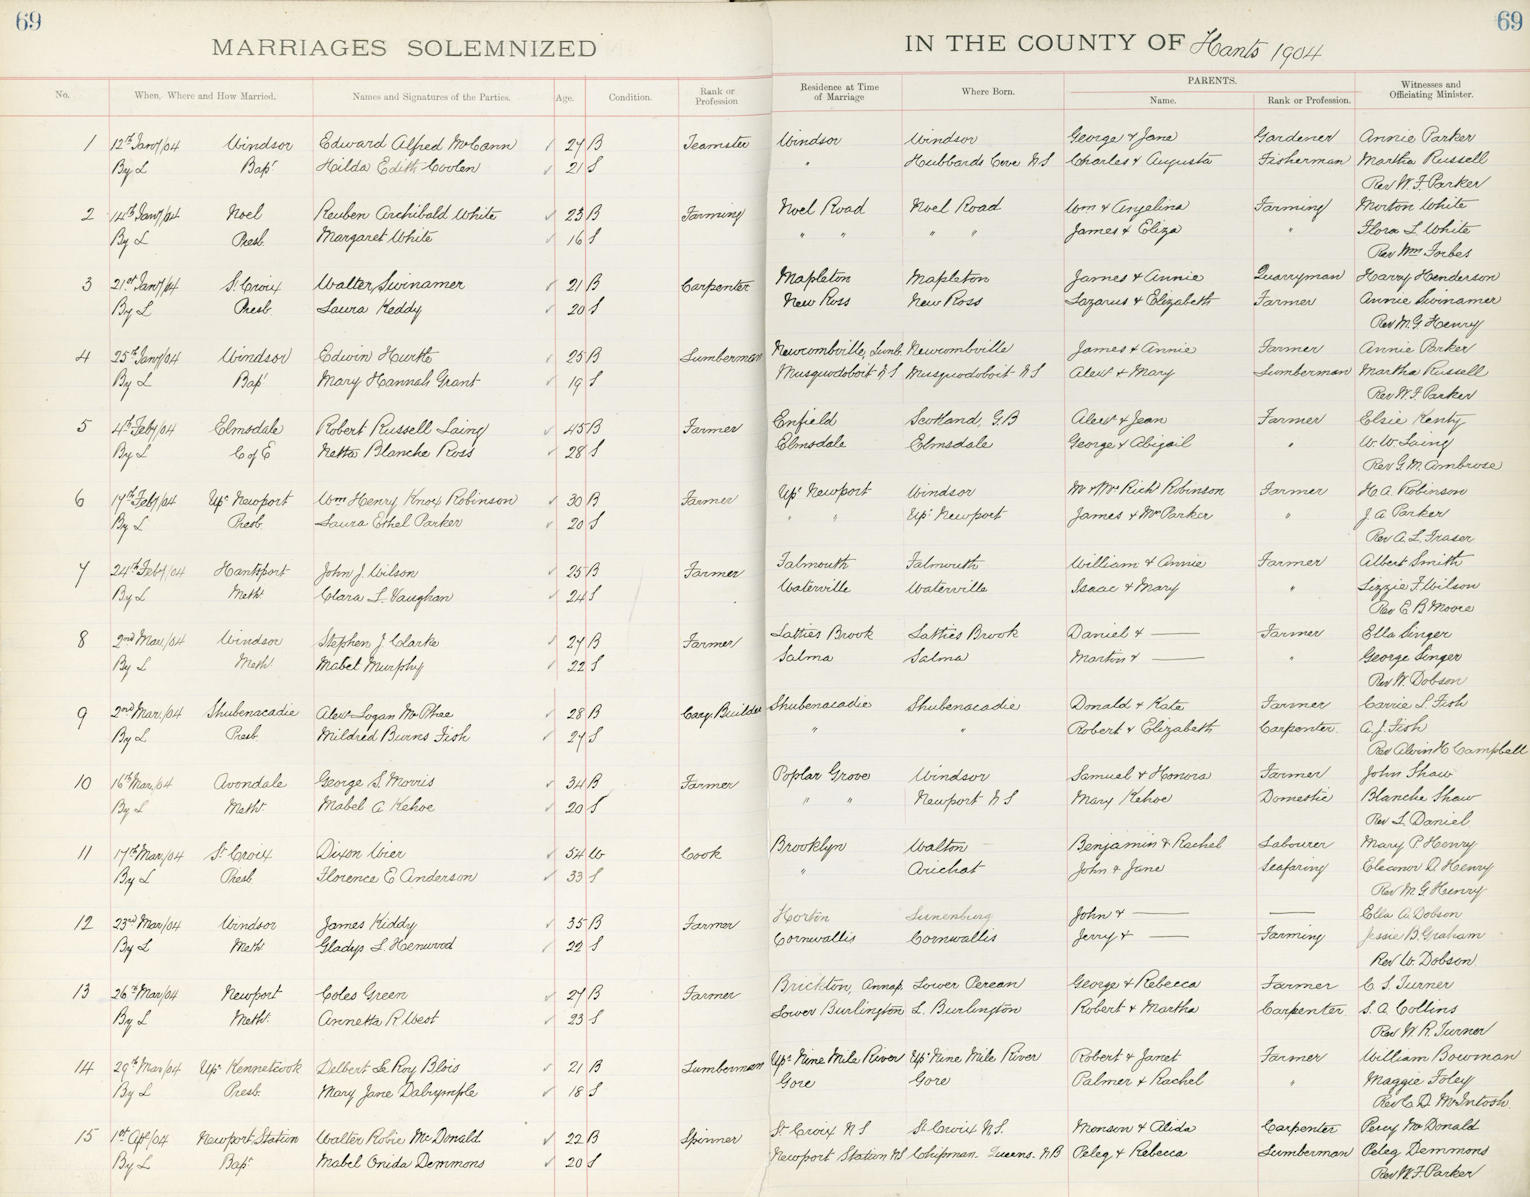 69 69
MARRIAGES SOLEMNIZED IN THE COUNTY OF Hants 1904
No. When, Where and How Married. Names and Signatures of the Parties. Age. Condition. Rank or Profession Residence at Time of Marriage Where Born. PARENTS. Name. Rank or Profession. Witnesses and Officiating Minister.
1 12th Jany/04 Windsor Edward Alfred McCann 27 B Teamster Windsor Windsor George & Jane Gardener Annie Parker
By L Bapt Hilda Edith Coolen 21 S " Hubbards Cove N S Charles & Augusta Fisherman Martha Russell
Rev W. F. Parker
2 14th Jany/04 Noel Reuben Archibald White 23 B Farming Noel Road Noel Road Wm & Angelina Farming Morton White
By L Presb. Margaret White 16 S " " " " James & Eliza " Flora L. White
Rev Wm Forbes
3 21st Jany/04 St. Croix Walter Swinamer 21 B Carpenter Mapleton Mapleton James & Annie Quarryman Harry Henderson
By L Presb Laura Keddy 20 S New Ross New Ross Lazarus & Elizabeth Farmer Annie Swinamer
Rev M. G. Henry
4 25th Jany/04 Windsor Edwin Hurtle 25 B Lumberman Newcombville, Lunb. Newcombville James & Annie Farmer Annie Parker
By L Bapt Mary Hannah Grant 19 S Musquodoboit N S Musquodoboit N S Alexr & Mary Lumberman Martha Russell
Rev W. F. Parker
5 4th Feby/04 Elmsdale Robert Russell Laing 45 B Farmer Enfield Scotland, G. B Alexr & Jean Farmer Elsie Kenty
By L C of E Netta Blanche Ross 28 S Elmsdale Elmsdale George & Abigail " W. W. Laing
Rev G. M. Ambrose
6 17th Feby/04 Upr Newport Wm Henry Knox Robinson 30 B Farmer Upr Newport Windsor Mr & Mrs Richd Robinson Farmer H. A. Robinson
By L Presb. Laura Ethel Parker 20 S " " Upr Newport James & Mrs Parker " J. A Parker
Rev A. L. Fraser
7 24th Feby/04 Hantsport John J. Wilson 25 B Farmer Falmouth Falmouth William & Annie Farmer Albert Smith
By L Meth Clara L. Vaughan 24 S Waterville Waterville Isaac & Mary " Lizzie F. Wilson
Rev E. B Moore
8 2nd Mar/04 Windsor Stephen J. Clarke 27 B Farmer Latties Brook Latties Brook Daniel & — Farmer Ella Singer
By L Meth Mabel Murphy 22 S Salma Salma Martin & — " George Singer
Rev W. Dobson
9 2nd Mar/04 Shubenacadie Alexr Logan McPhee 28 B Carg. Builder Shubenacadie Shubenacadie Donald & Kate Farmer Carrie L. Fish
By L Presb. Mildred Burns Fish 27 S " " Robert & Elizabeth Carpenter A. J. Fish
Rev Alvin H Campbell
10 16th Mar/04 Avondale George S. Morris 34 B Farmer Poplar Grove Windsor Samuel & Honora Farmer John Shaw
By L Meth Mabel A. Kehoe 20 S " " Newport N S Mary Kehoe Domestic Blanche Shaw
Rev L. Daniel
11 17th Mar/04 St Croix Dixon Wier 54 W Cook Brooklyn Walton Benjamin & Rachel Labourer Mary P. Henry
By L Presb. Florence E Anderson 33 S " Arichat John & Jane Seafaring Eleanor D. Henry
Rev M. G. Henry
12 23rd Mar/04 Windsor James Kiddy 35 B Farmer Horton Lunenburg John & — — Ella A. Dobson
By L Meth Gladys L. Henwood 22 S Cornwallis Cornwallis Jerry & — Farming Jessie B. Graham
Rev W. Dobson
13 26th Mar/04 Newport Coles Green 27 B Farmer Brickton, Annap. Lower Perean George & Rebecca Farmer C. S. Turner
By L Meth. Annetta R. West 23 S Lower Burlington L. Burlington Robert & Martha Carpenter S. A Collins
Rev W. R. Turner
14 29th Mar/04 Upr Kennetcook Delbert Le Roy Blois 21 B Lumberman Upr Nine Mile River Upr Nine Mile River Robert & Janet Farmer William Bowman
By L Presb. Mary Jane Dalrymple 18 S Gore Gore Palmer & Rachel " Maggie Foley
Rev C. D. McIntosh
15 1st Apl/04 Newport Station Walter Robie McDonald 22 B Spinner St Croix N S St. Croix N. S. Monson & Alida Carpenter Percy McDonald
By L Bapt Mabel Onida Demmons 20 S Newport Station N S Chipman. Queens. N B Peleg & Rebecca Lumberman Peleg Demmons
Rev W. F. Parker